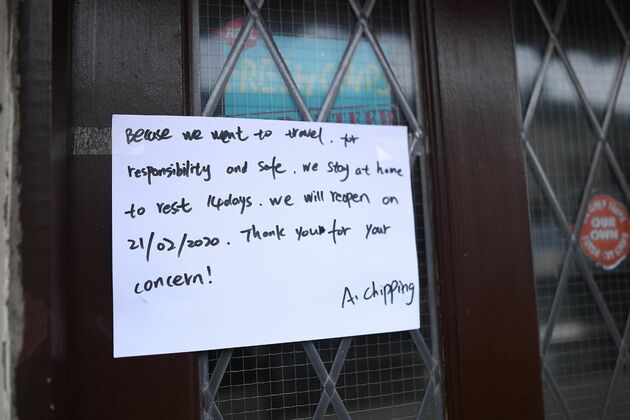 Becase we went to travel. for
responsibility and safe. we stay at home
to rest 14days. we will reopen on
21/02/2020. Thank you for your
concern!
A. Chipping
OUR
OWN